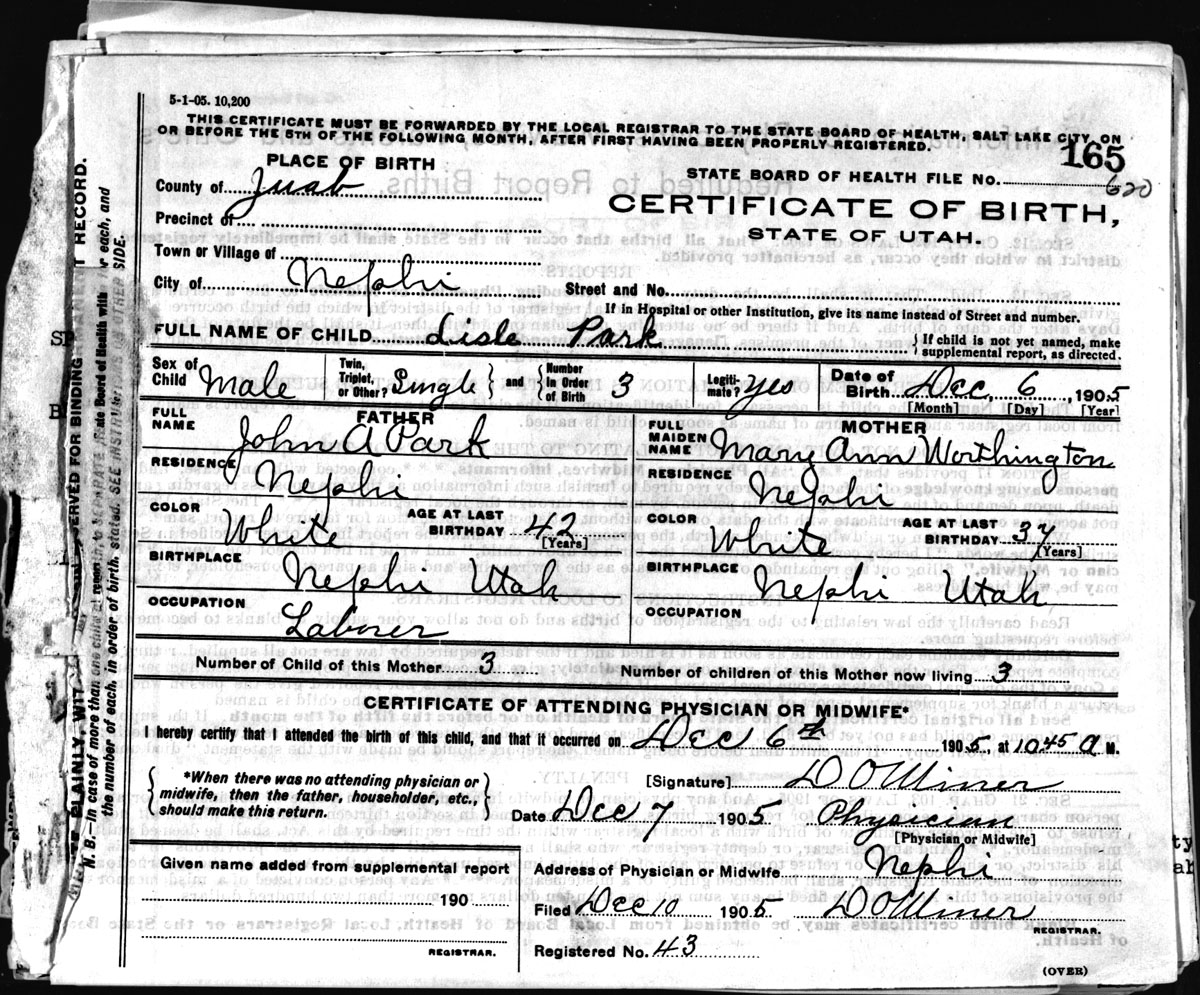 5-1-05. 10,200
THIS CERTIFICATE MUST BE FORWARDED BY THE LOCAL REGISTRAR TO THE STATE BOARD OF HEALTH, SALT LAKE CITY, ON
OR BEFORE THE 5TH OF THE FOLLOWING MONTH, AFTER FIRST HAVING BEEN PROPERLY REGISTERED.
165
PLACE OF BIRTH
STATE BOARD OF HEALTH FILE No. 620
County of Juab
CERTIFICATE OF BIRTH,
Precinct of
STATE OF UTAH.
Town or Village of
City of Nephi
Street and No.
If in Hospital or other Institution, give its name instead of Street and number.
FULL NAME OF CHILD Lisle Park { If child is not yet named, make
supplemental report, as directed.
Sex of Child Male
Twin, Triplet, or Other? Single } and { Number in Order of Birth 3
Legitimate? Yes
Date of Birth Dec, 6, 1905
[Month] [Day] [Year]
FATHER
FULL NAME John A Park
RESIDENCE Nephi
COLOR White AGE AT LAST BIRTHDAY 42 [Years]
BIRTHPLACE Nephi Utah
OCCUPATION Laborer
MOTHER
FULL MAIDEN NAME Mary Ann Worthington
RESIDENCE Nephi
COLOR White AGE AT LAST BIRTHDAY 37 [Years]
BIRTHPLACE Nephi Utah
OCCUPATION
Number of Child of this Mother 3 Number of children of this Mother now living 3
CERTIFICATE OF ATTENDING PHYSICIAN OR MIDWIFE*
I hereby certify that I attended the birth of this child, and that it occurred on Dec 6th 1905, at 1045 a M.
{ *When there was no attending physician or
midwife, then the father, householder, etc.,
should make this return. }
[Signature] D O Miner
Date Dec 7 1905 Physician
[Physician or Midwife]
Given name added from supplemental report
190
REGISTRAR.
Address of Physician or Midwife Nephi
Filed Dec 10 1905 D O Miner
REGISTRAR.
Registered No. 43
(OVER)
N. B.—In case of more than one child at
the number of each, in order of birth, stated. SEE INSTRUCTIONS ON OTHER SIDE.